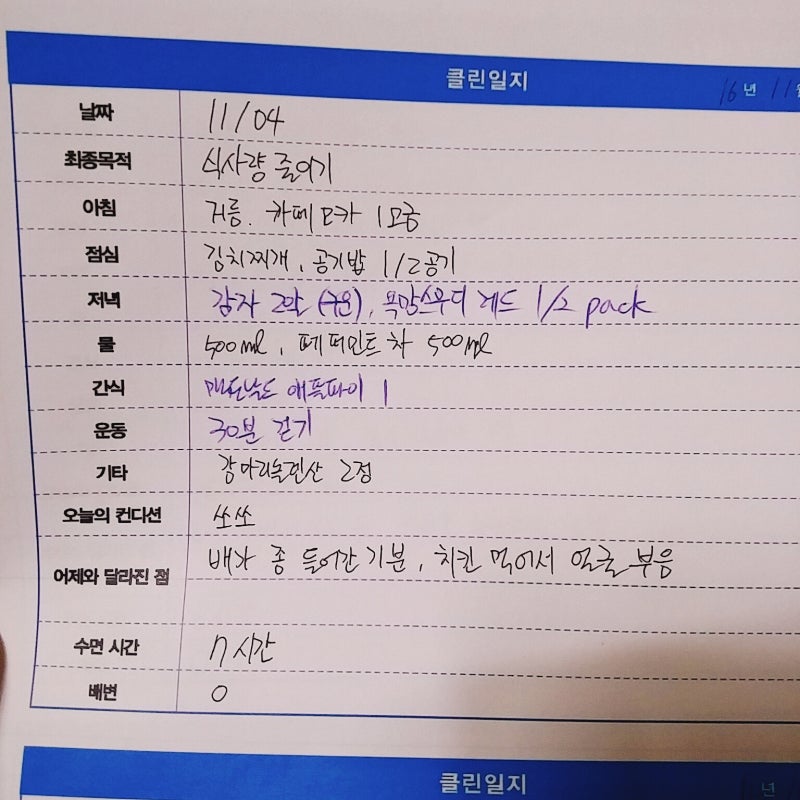 클린일지 16년 11월
날짜 11/04
최종목적 식사량 줄이기
아침 거름. 카페모카 1모금
점심 김치찌개, 공기밥 1/2공기
저녁 감자 2알 (구운), 욕망스무디 레드 1/2 pack
물 500ml, 페퍼민트차 500ml
간식 맥도날드 애플파이 1
운동 30분 걷기
기타 감마리놀렌산 2정
오늘의 컨디션 쏘쏘
어제와 달라진 점 배가 좀 들어간 기분, 치킨 먹어서 얼굴 부음
수면 시간 7시간
배변 O
클린일지 년